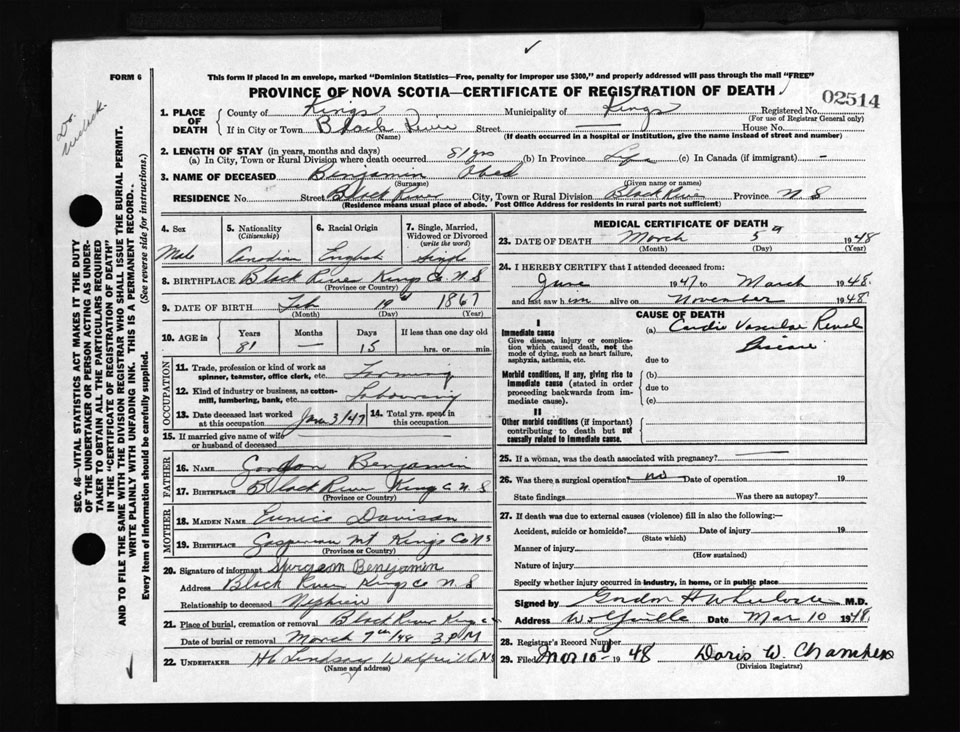 FORM 6
This form if placed in an envelope, marked "Dominion Statistics—Free, penalty for improper use $300," and properly addressed will pass through the mail "FREE"
PROVINCE OF NOVA SCOTIA—CERTIFICATE OF REGISTRATION OF DEATH
02514
1. PLACE OF DEATH
County of Kings Municipality of Kings Registered No.
(For use of Registrar General only)
If in City or Town Black River Street — House No.
(Name) (If death occurred in a hospital or institution, give the name instead of street and number)
2. LENGTH OF STAY (in years, months and days)
(a) In City, Town or Rural Division where death occurred 81 yrs (b) In Province Life (c) In Canada (if immigrant) -
3. NAME OF DECEASED Benjamin Obed
(Surname) (Given name or names)
RESIDENCE No. Street Black River City, Town or Rural Division Black River Province N S
(Residence means usual place of abode. Post Office Address for residents in rural parts not sufficient)
4. Sex
Male
5. Nationality (Citizenship)
Canadian
6. Racial Origin
English
7. Single, Married, Widowed or Divorced (write the word)
Single
8. BIRTHPLACE Black River Kings Co N. S
(Province or Country)
9. DATE OF BIRTH Feb 19th 1867
(Month) (Day) (Year)
10. AGE in
Years Months Days If less than one day old
81 — 15 hrs. or min.
OCCUPATION
11. Trade, profession or kind of work as spinner, teamster, office clerk, etc. Farming
12. Kind of industry or business, as cotton-mill, lumbering, bank, etc. Labouring
13. Date deceased last worked at this occupation Jan 3/47 14. Total yrs. spent in this occupation
15. If married give name of wife or husband of deceased —
FATHER
16. NAME Gordon Benjamin
17. BIRTHPLACE Black River Kings C N. S
(Province or Country)
MOTHER
18. MAIDEN NAME Eunice Davison
19. BIRTHPLACE Gaspereau Mt Kings Co N S
(Province or Country)
20. Signature of informant Benjamin
Address Black River Kings Co N. S
Relationship to deceased Nephew
21. Place of burial, cremation or removal Black River Kings
Date of burial or removal March 7th/48 3 P M
22. UNDERTAKER Lindsay Wolfville NS
(Name and address)
MEDICAL CERTIFICATE OF DEATH
23. DATE OF DEATH March 5th 1948
(Month) (Day) (Year)
24. I HEREBY CERTIFY that I attended deceased from:
June 1947 to March 1948.
and last saw him alive on November 1948
CAUSE OF DEATH
I
Immediate cause
Give disease, injury or complication which caused death, not the mode of dying, such as heart failure, asphyxia, asthenia, etc.
(a) Cardio Vascular Renal
Disease
due to
Morbid conditions, if any, giving rise to immediate cause (stated in order proceeding backwards from immediate cause).
(b)
due to
(c)
II
Other morbid conditions (if important) contributing to death but not causally related to immediate cause.
25. If a woman, was the death associated with pregnancy? —
26. Was there a surgical operation? no Date of operation 19
State findings Was there an autopsy?
27. If death was due to external causes (violence) fill in also the following:—
Accident, suicide or homicide? Date of injury 19
(State which)
Manner of injury
(How sustained)
Nature of injury
Specify whether injury occurred in industry, in home, or in public place
Signed by Gordon H M.D.
Address Wolfville Date Mar 10 1948
28. Registrar's Record Number
29. Filed Mar 10th 1948 Doris W. Chambers
(Division Registrar)
SEC. 46—VITAL STATISTICS ACT MAKES IT THE DUTY
OF THE UNDERTAKER OR PERSON ACTING AS UNDER-
TAKER TO OBTAIN ALL THE PARTICULARS REQUIRED
IN THE "CERTIFICATE OF REGISTRATION OF DEATH"
AND TO FILE THE SAME WITH THE DIVISION REGISTRAR WHO SHALL ISSUE THE BURIAL PERMIT.
WRITE PLAINLY WITH UNFADING INK. THIS IS A PERMANENT RECORD.
Every item of information should be carefully supplied. (See reverse side for instructions.)